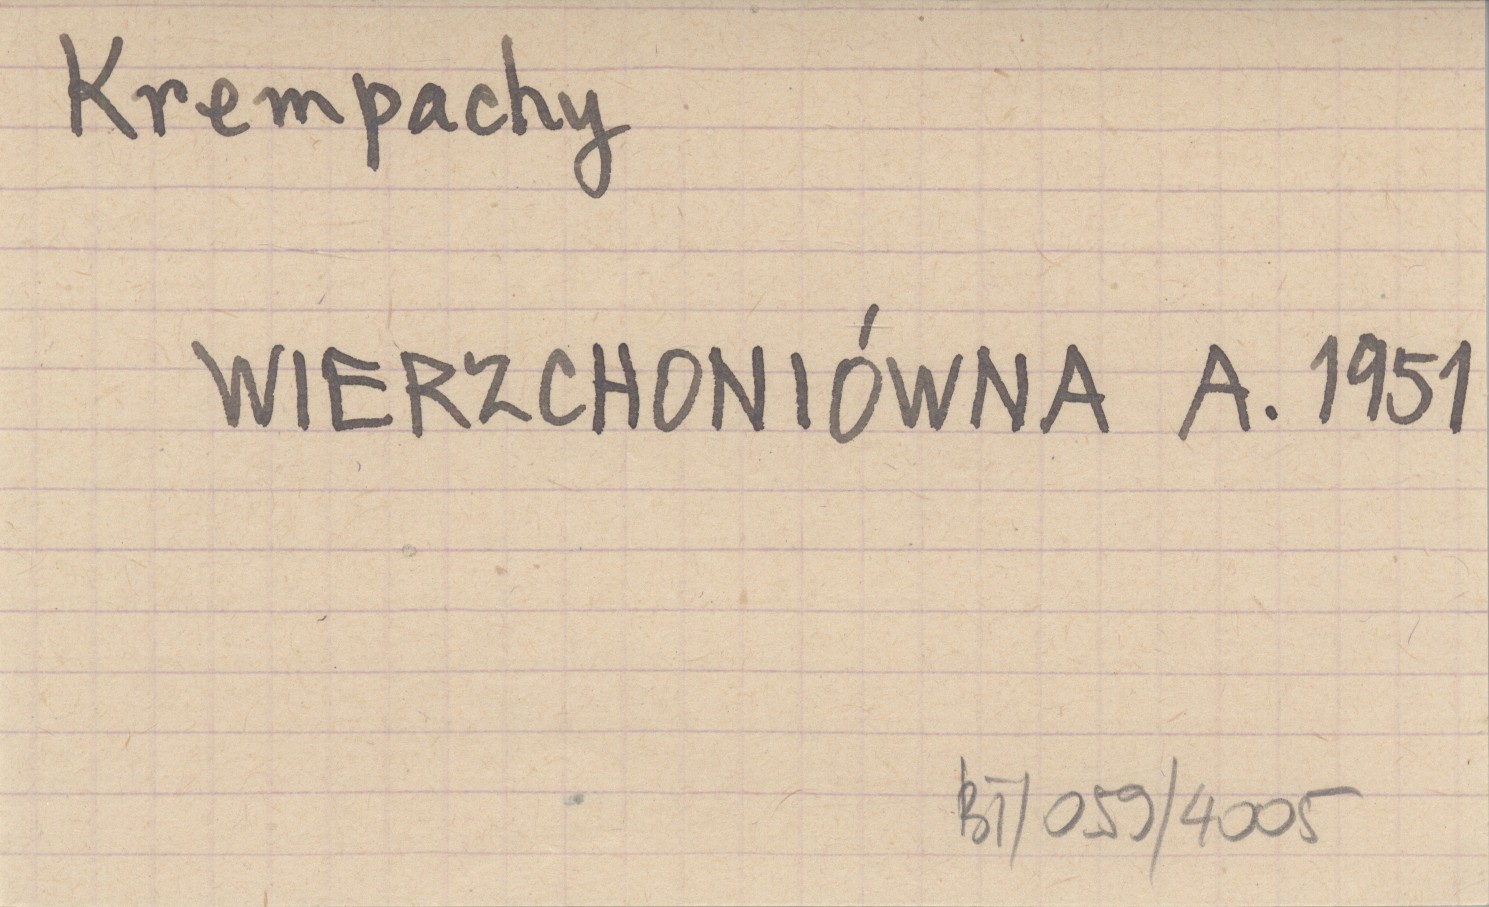 Krempachy
WIERZCHONIÓWNA A. 1951
BT/059/4005